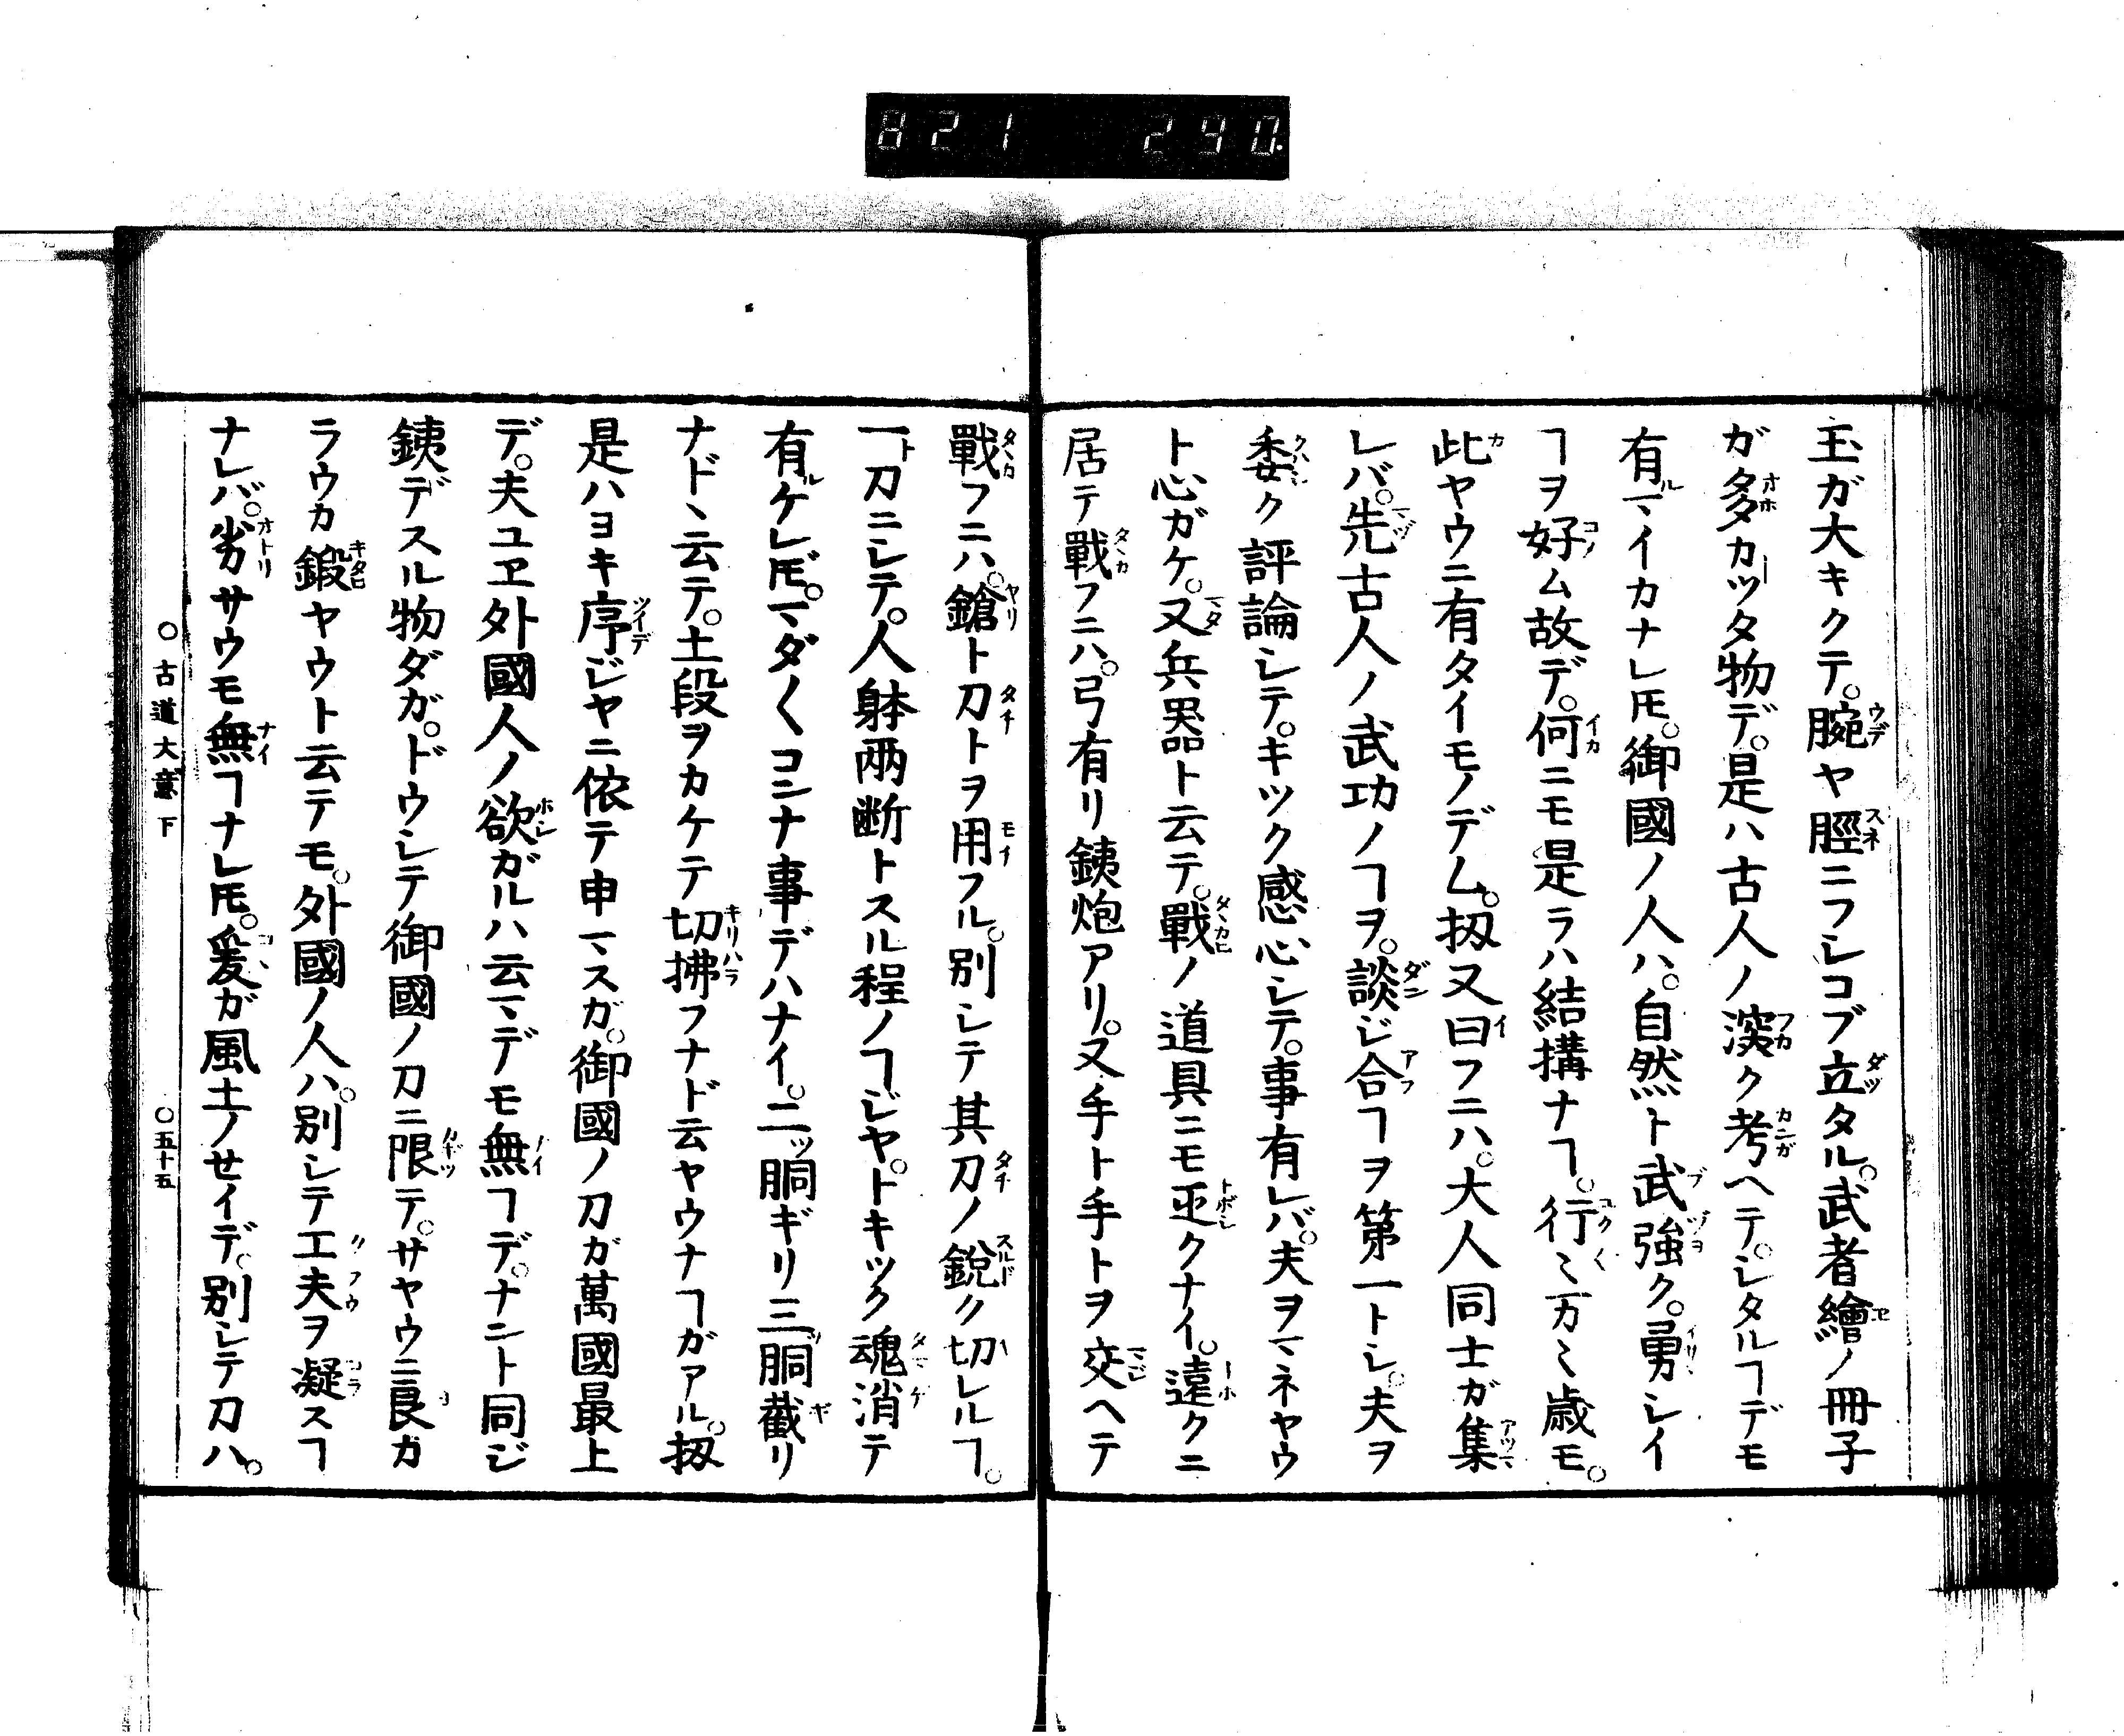 821 290.
玉ガ大キクテ。腕ヤ脛ニフレコブ立タル。武者繪ノ冊子
ガ多カツタ物デ。是ハ古人ノ深ク考ヘテ。シタルヿデモ
有マイカナレ𪜈。御國ノ人ハ。自然ト武強ク。勇シイ
ヿヲ好ム故デ。何ニモ是ラハ結構ナヿ。行〻万〻歳モ。
此ヤウニ有タイモノデム。扨又曰フニハ。大人同士ガ集
レバ。先古人ノ武功ノヿヲ。談ジ合ヿヲ第一トシ。夫ヲ
委ク評論シテ。キツク感心シテ。事有レバ。夫ヲマネヤウ
ト心ガケ。又兵器ト云テ。戰ノ道具ニモ乏クナイ。遠クニ
居テ戰フニハ。弓有リ銕炮アリ。又手ト手トヲ交ヘテ
戰フニハ。鎗ト刀トヲ用フル。別シテ其刀ノ銳ク切レルヿ。
一刀ニシテ。人躰両断トスル程ノヿジヤ。トキツク魂消テ
有ケレ𪜈。マダ〱コンナ事デハナイ。二ッ胴ギリ三胴截リ
ナドヽ云テ。土段ヲカケテ切拂フナド云ヤウナヿガアル。扨
是ハヨキ序ジヤニ依テ申マスガ。御國ノ刀ガ萬國最上
デ。夫ユヱ外國人ノ欲ガルハ云マデモ無ヿデ。ナント同ジ
銕デスル物ダガ。ドウシテ御國ノ刀ニ限テ。サヤウニ良カ
ラウカ鍛ヤウト云テモ。外國ノ人ハ。別シテ工夫ヲ凝スヿ
ナレバ。劣サウモ無ヿナレ𪜈。爰ガ風土ノセイデ。別シテ刀ハ。
○古道大意下 ○五十五